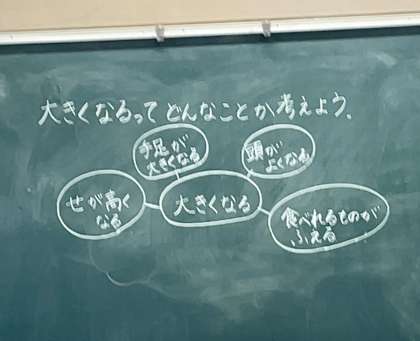 大きくなるってどんなことか考えよう。
手足が
大きくなる
頭が
よくなる
せが高く
なる
大きくなる
食べれるものが
ふえる